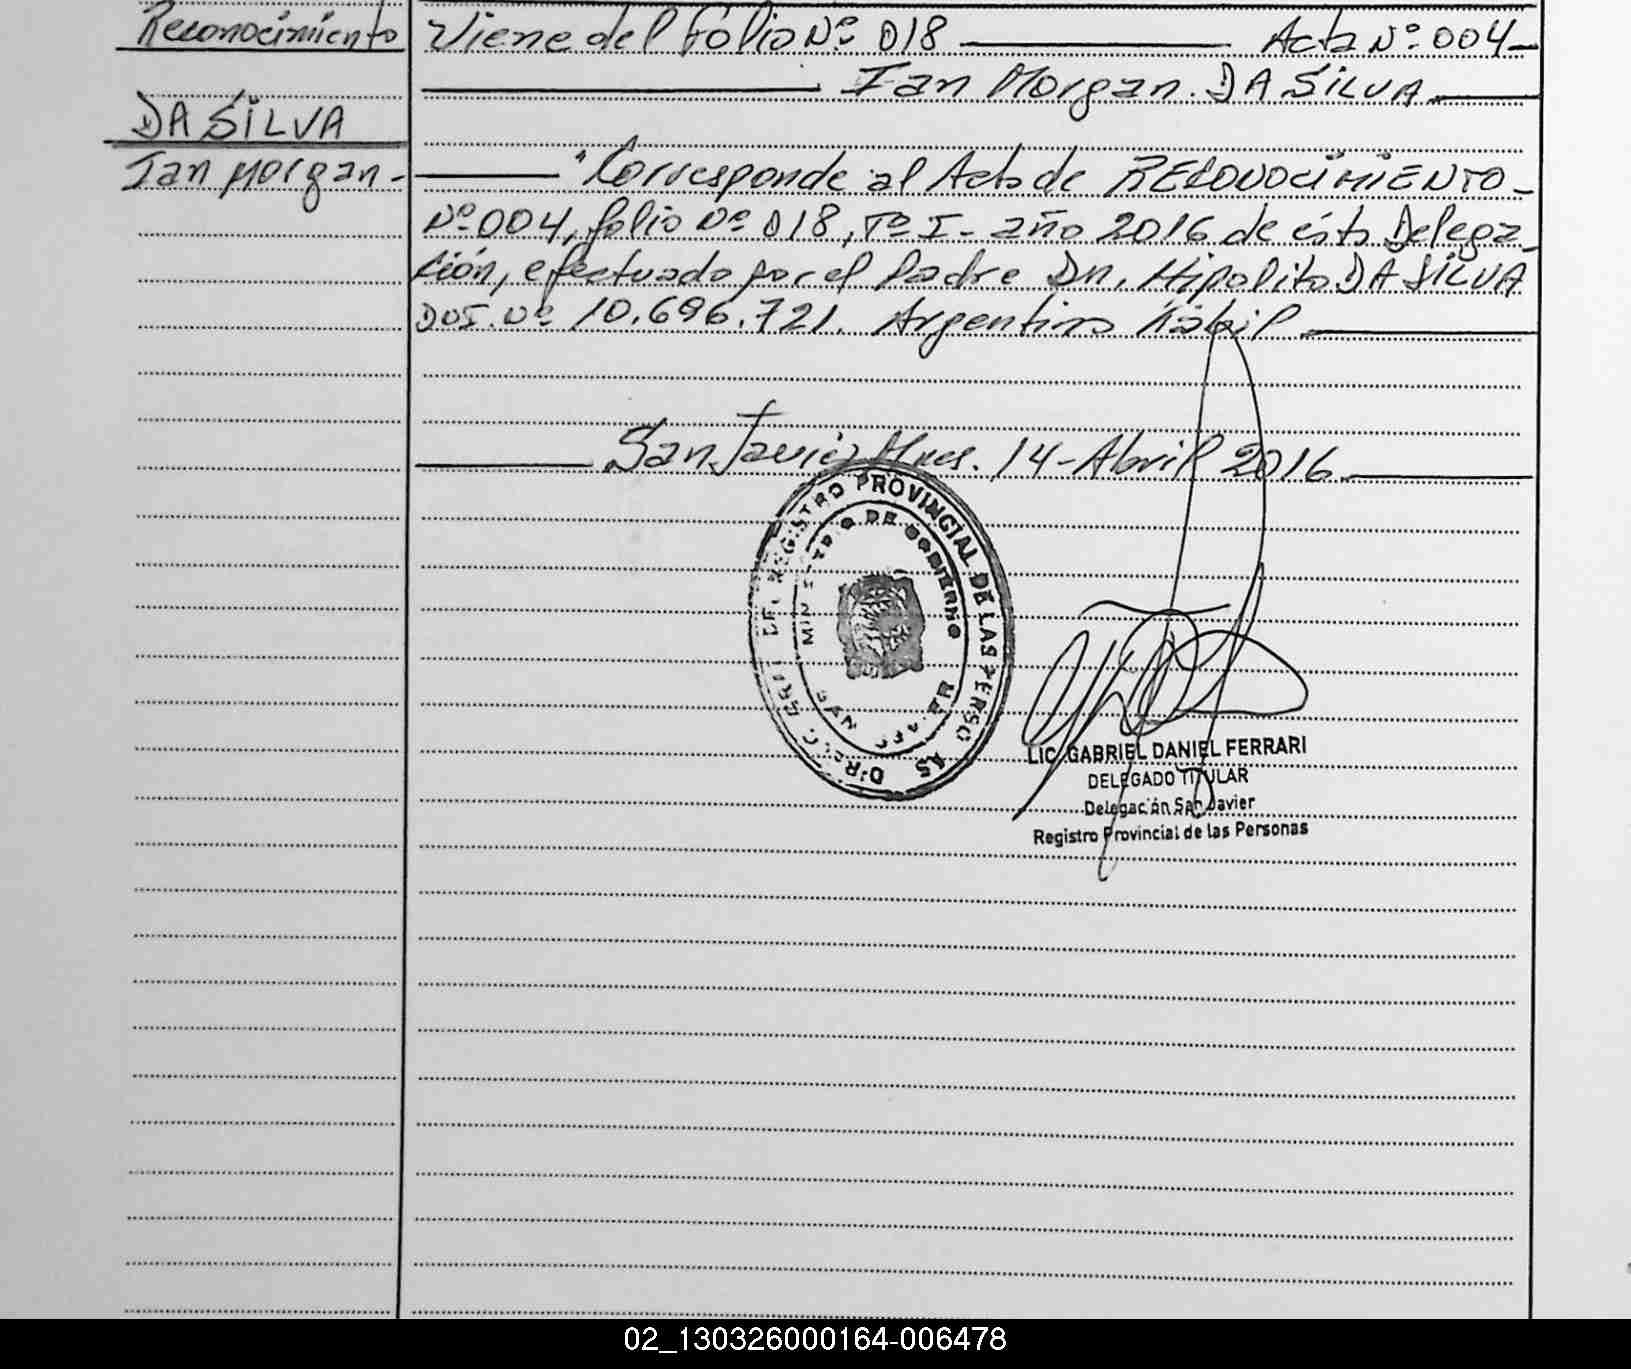 Reconocimiento
DA SILVA
Ian Morgan -
Viene del folio Nº 018 Acta Nº 004
Ian Morgan DA SILVA
"Corresponde al Acta de RECONOCIMIENTO
Nº 004, folio Nº 018, Tº I - año 2016 de ésta Delega-
ción, efectuado por el Padre Dn. Hipolito DA SILVA
DNI. Nº 10.696.721. Argentino Hábil
San Javier Mnes. 14 - Abril 2016
REGISTRO PROVINCIAL DE LAS PERSONAS
MINISTERIO DE GOBIERNO
LIC. GABRIEL DANIEL FERRARI
DELEGADO TITULAR
Delegación San Javier
Registro Provincial de las Personas
02_130326000164-006478